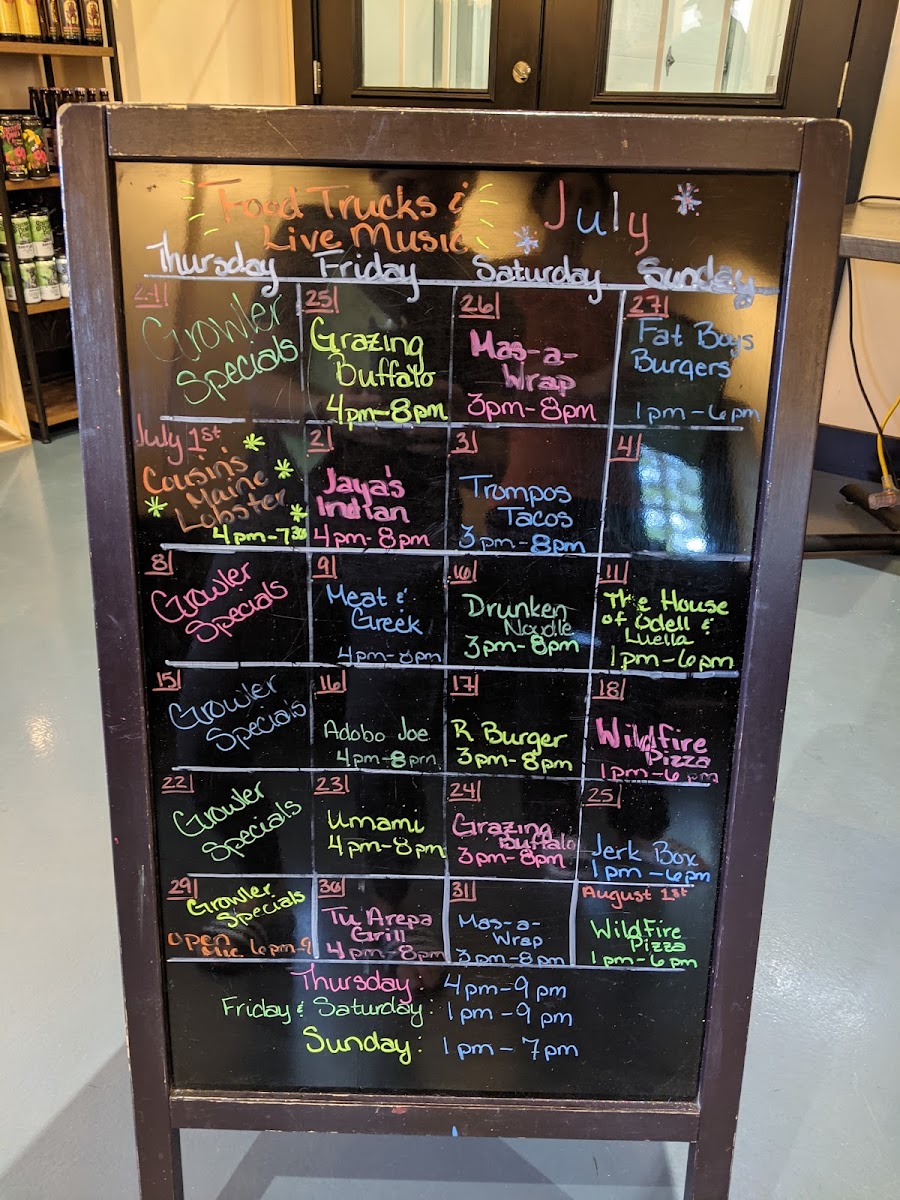 Food Trucks &
Live Music
July
Thursday Friday Saturday Sunday
24
Growler
Specials
25
Grazing
Buffalo
4pm-8pm
26
Mas-a-
Wrap
3pm-8pm
27
Fat Boys
Burgers
1pm-6pm
July 1st
Cousin's
Maine
Lobster
4pm-7:30
2
Jaya's
Indian
4pm-8pm
3
Trompos
Tacos
3pm-8pm
4
8
Growler
Specials
9
Meat &
Greek
4pm-8pm
10
Drunken
Noodle
3pm-8pm
11
The House
of Odell &
Luella
1pm-6pm
15
Growler
Specials
16
Adobo Joe
4pm-8pm
17
R Burger
3pm-8pm
18
Wildfire
Pizza
1pm-6pm
22
Growler
Specials
23
Umami
4pm-8pm
24
Grazing
Buffalo
3pm-8pm
25
Jerk Box
1pm-6pm
29
Growler
Specials
Open
Mic 6pm-9
30
Tu Arepa
Grill
4pm-8pm
31
Mas-a-
Wrap
3pm-8pm
August 1st
Wildfire
Pizza
1pm-6pm
Thursday: 4pm-9pm
Friday & Saturday: 1pm-9pm
Sunday: 1pm-7pm